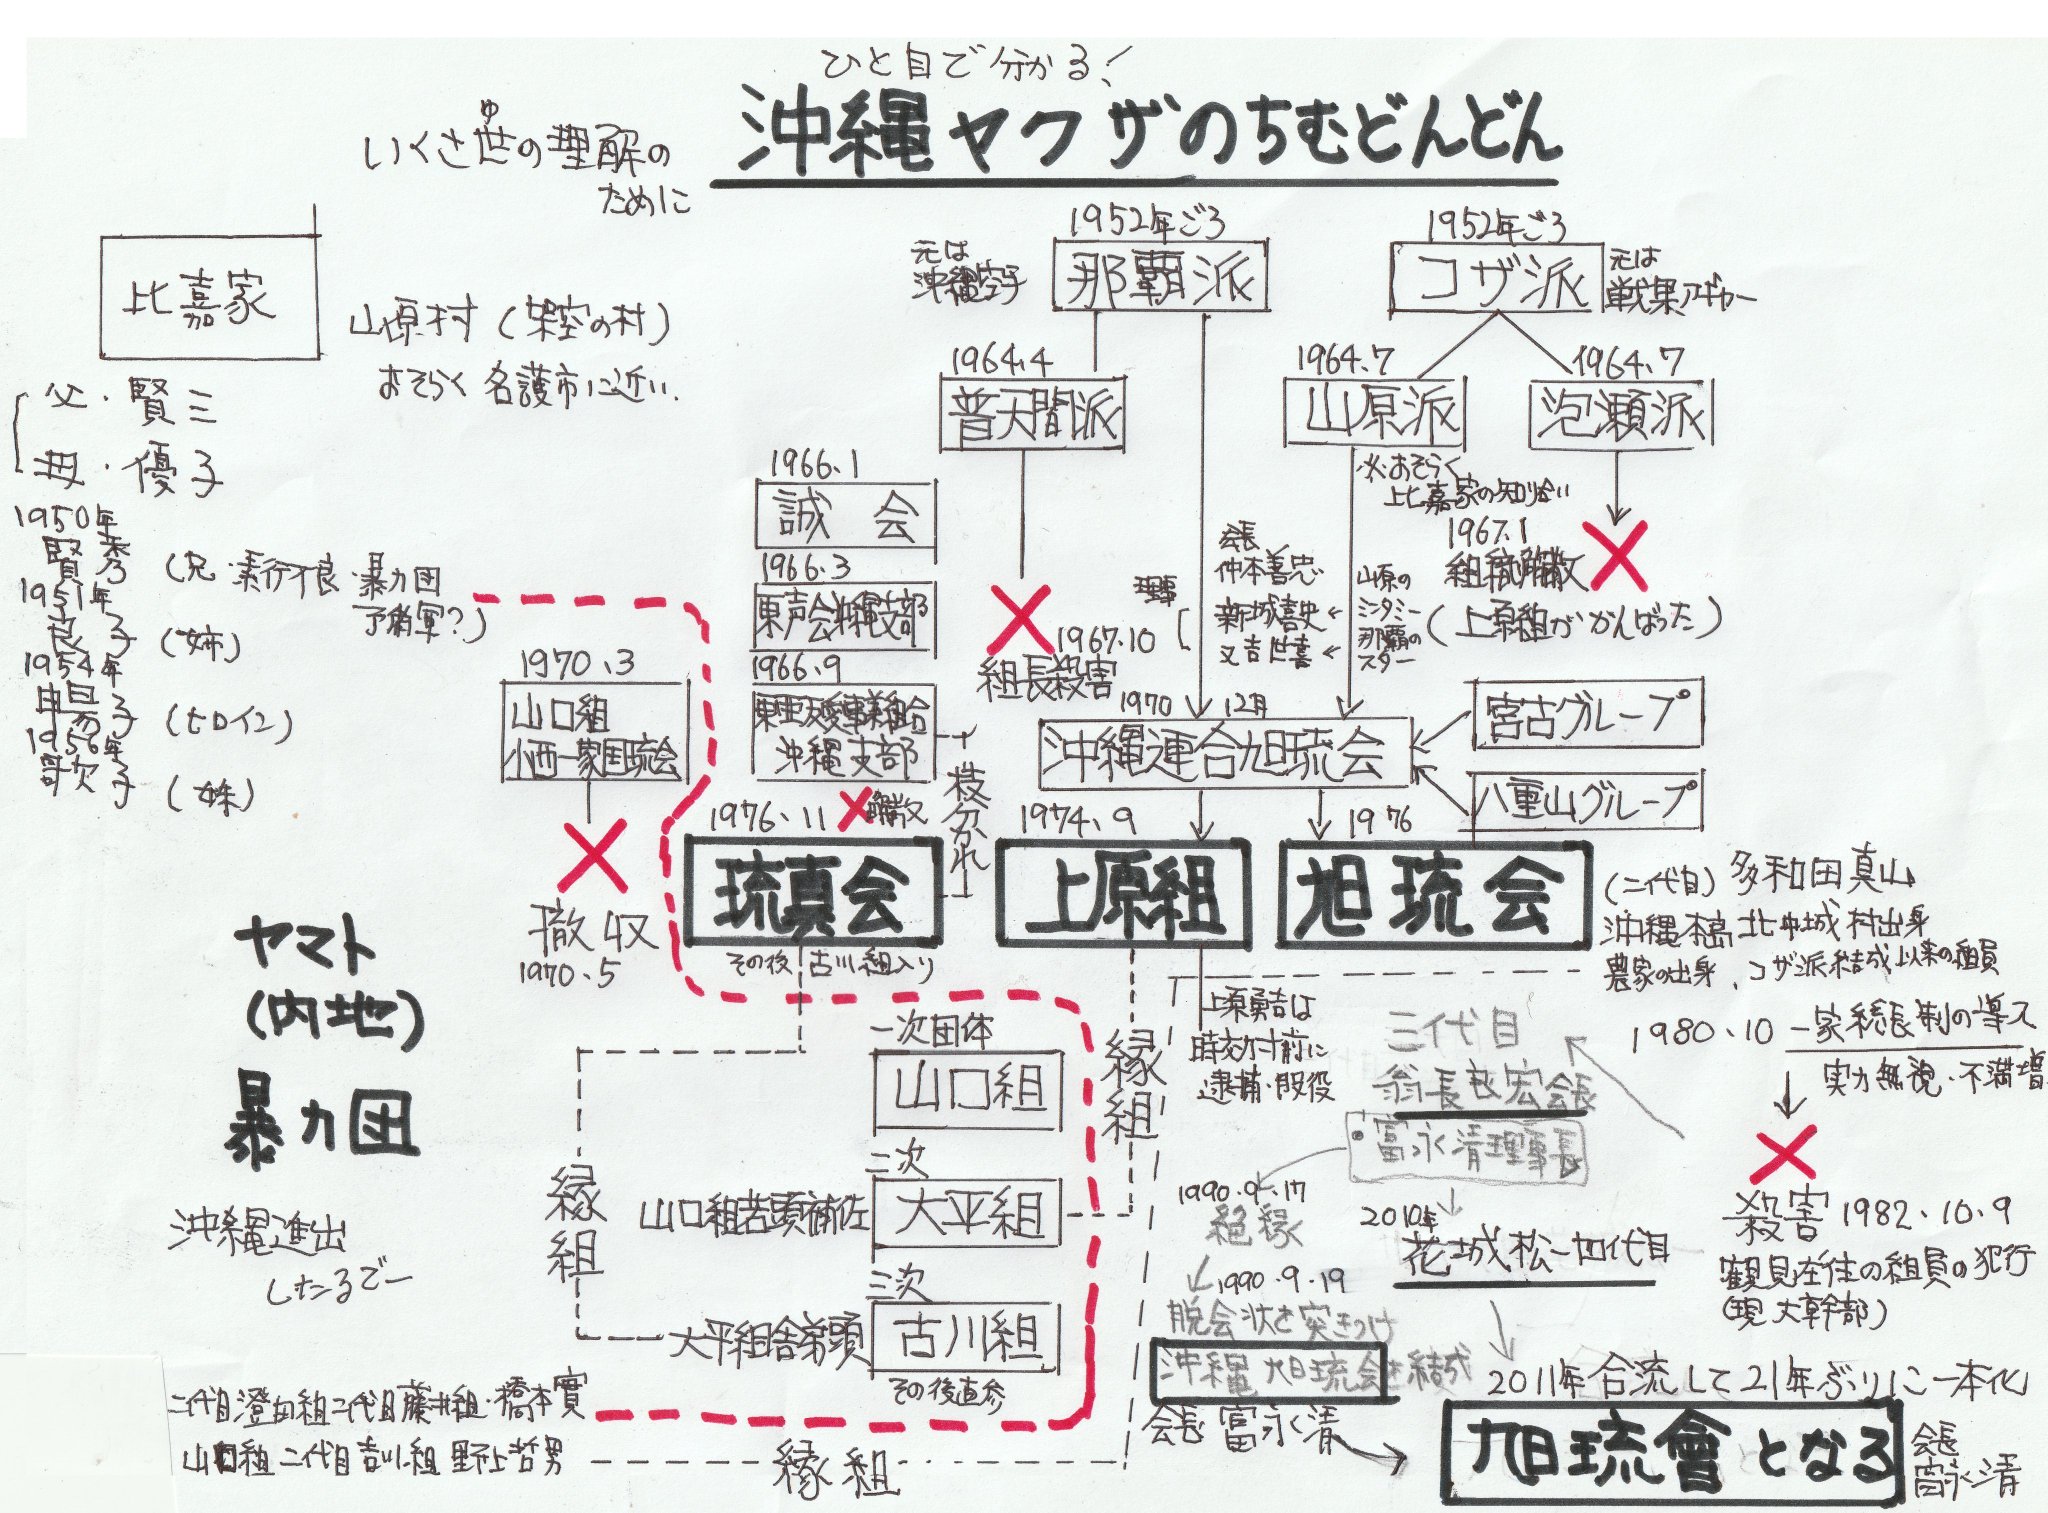 ひと目で分かる!
沖縄ヤクザのちむどんどん
いくさ世の理解の
ゆ
ために
比嘉家
山原村(架空の村)
おそらく名護市に近い.
父・賢三
母・優子
1950年
賢秀
(兄・素行不良・暴力団
予備軍?)
1951年
良子
(姉)
1954年
暢子
(ヒロイン)
1956年
歌子
(妹)
1952年ごろ
那覇派
元は
沖縄空手
1952年ごろ
コザ派
元は
戦果アギャー
1964.4
普天間派
1964.7
山原派
1964.7
泡瀬派
※おそらく
比嘉家の知り合い
1967.1
組織解散
(上原組ががんばった)
1966.1
誠会
1966.3
東声会沖縄支部
1966.9
東亜友愛事業組合
沖縄支部
解散
枝分かれ
1967.10
組長殺害
会長
仲本善忠
理事
新城喜史
又吉世喜
山原の
ミンタミー
那覇の
スター
1970.3
山口組
小西一家国琉会
撤収
1970.5
1970 12月
沖縄連合旭琉会
宮古グループ
八重山グループ
1976.11
琉真会
その後古川組入り
1974.9
上原組
1976
旭琉会
(二代目)多和田真山
沖縄本島北中城村出身
農家の出身、コザ派結成以来の組員
1980.10 一家総長制の導入
実力無視・不満増
殺害 1982.10.9
鶴見在住の組員の犯行
(現大幹部)
上原勇吉は
時効寸前に
逮捕・服役
三代目
翁長良宏会長
・富永清理事長
1990.9.17
絶縁
1990.9.19
脱会状を突きつけ
沖縄旭琉会を結成
会長富永清
2010年
花城松一四代目
2011年合流して21年ぶりに一本化
旭琉會となる
会長
富永清
ヤマト
(内地)
暴力団
沖縄進出
したるでー
一次団体
山口組
二次
山口組若頭補佐
大平組
三次
大平組舎弟頭
古川組
その後直参
縁組
縁組
二代目澄田組二代目藤井組・橋本實
山口組二代目吉川組野上哲男
縁組